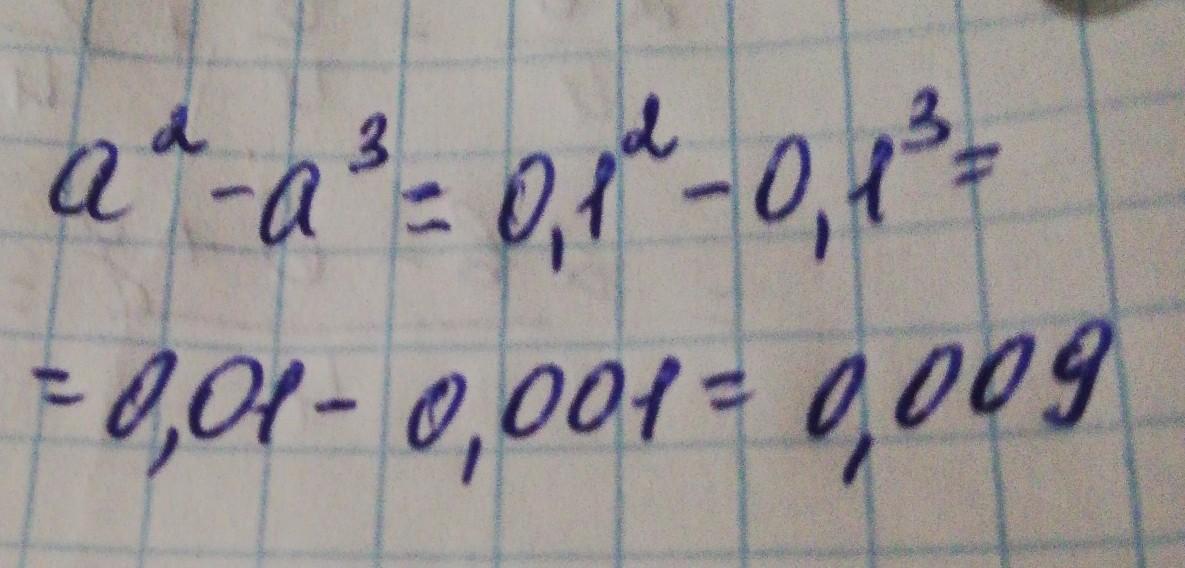 a² - a³ = 0,1² - 0,1³ =
= 0,01 - 0,001 = 0,009